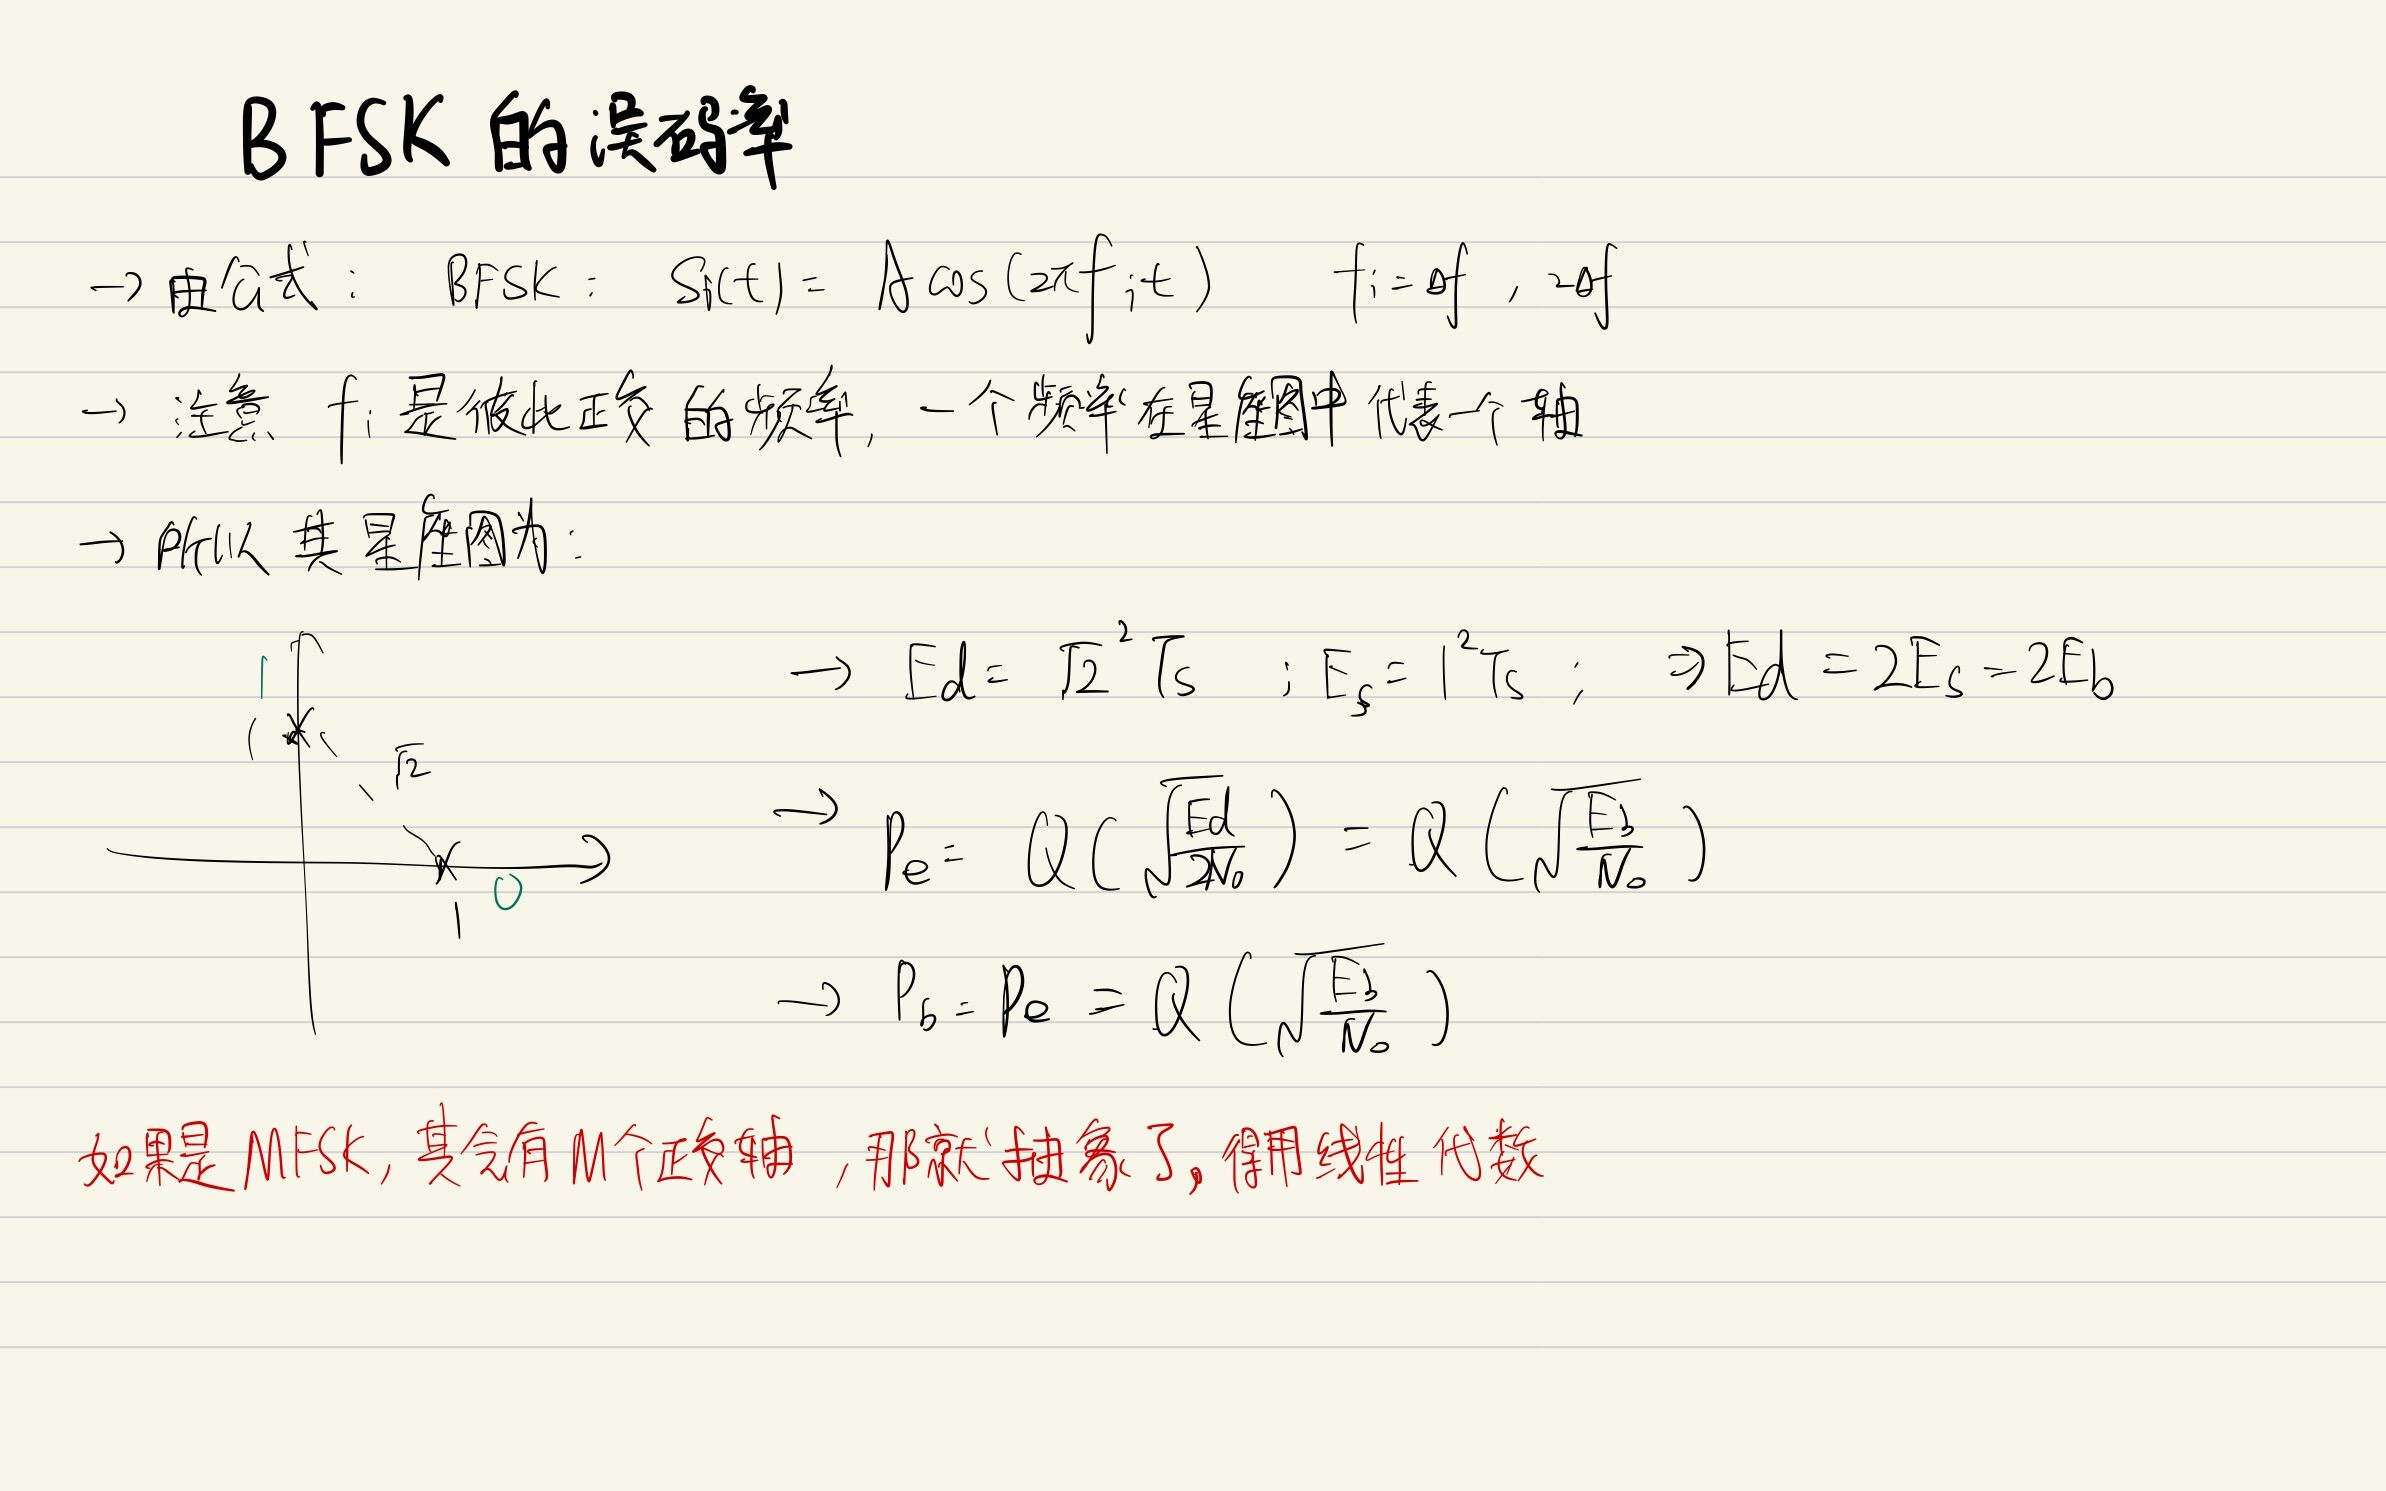 BFSK 的误码率
→ 由公式: BFSK: Si(t) = A cos(2πfit) fi = Δf, 2Δf
→ 注意 fi 是彼此正交的频率, 一个频率在星座图中代表一个轴
→ 所以其星座图为:
1
1
√2
0
1
→ Ed = √2² Ts ; Es = 1² Ts ; ⇒ Ed = 2Es = 2Eb
→ Pe = Q(√(Ed/2N₀)) = Q(√(Eb/N₀))
→ Pb = Pe = Q(√(Eb/N₀))
如果是MFSK, 其会有M个正交轴, 那就抽象了。得用线性代数